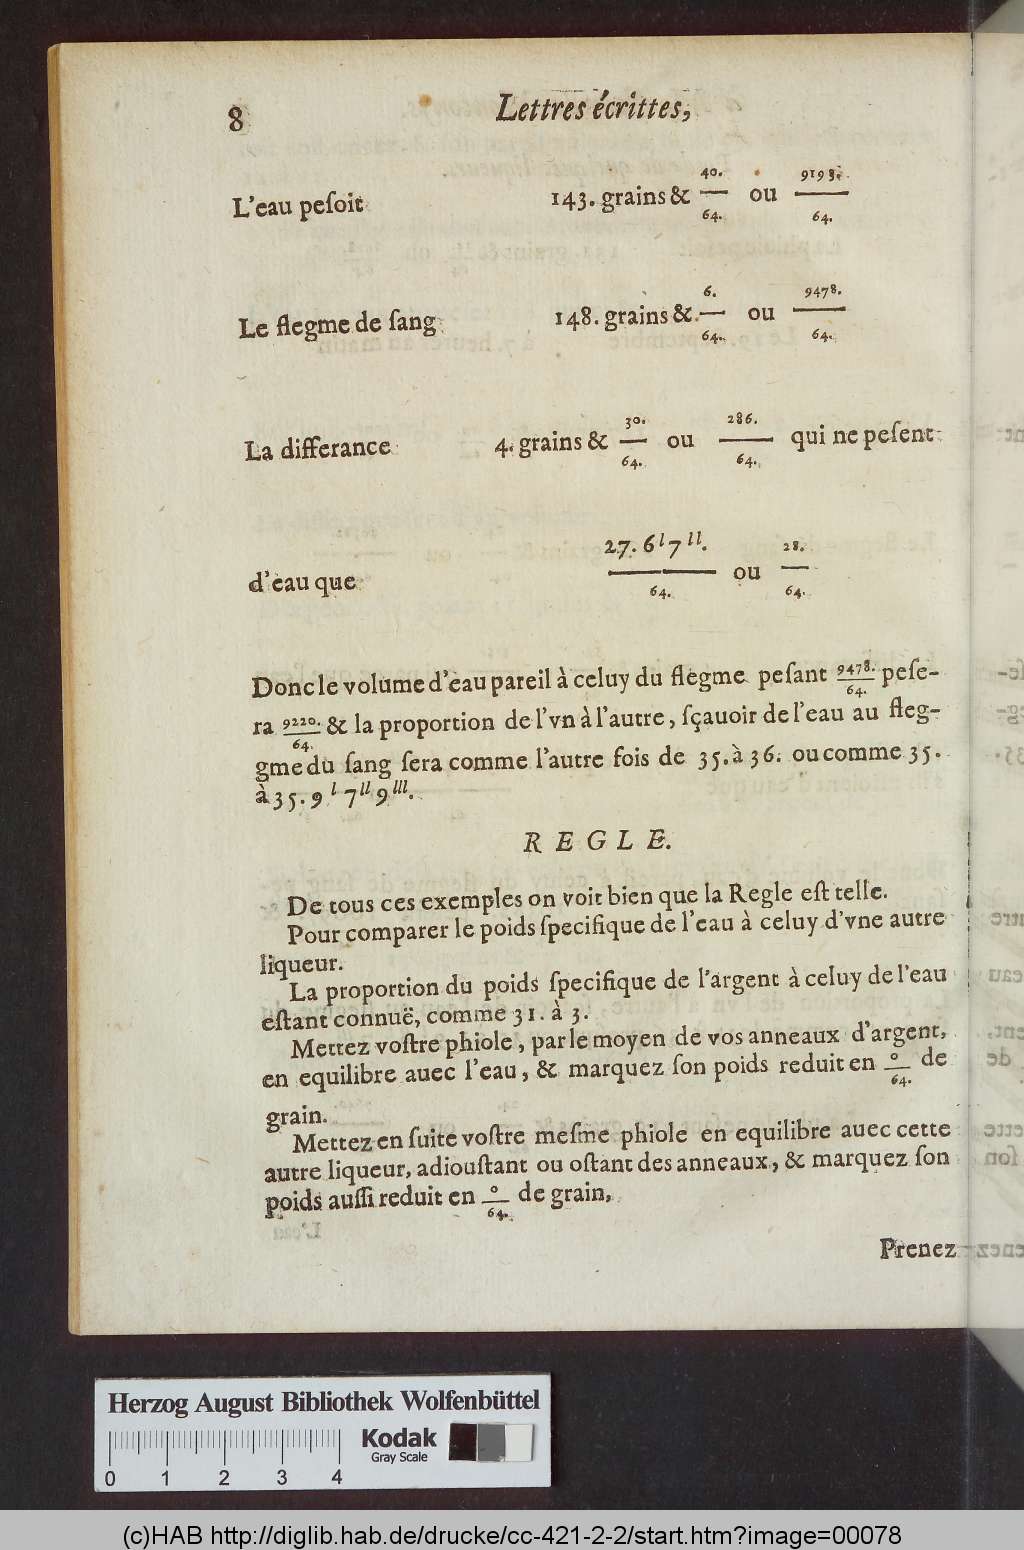 8 Lettres écrittes,
L'eau peſoit 143. grains & 40./64. ou 9193./64.
Le flegme de ſang 148. grains & 6./64. ou 9478./64.
La differance 4. grains & 30./64. ou 286./64. qui ne peſent
d'eau que 27. 6ˡ 7ˡˡ./64. ou 28./64.
Donc le volume d'eau pareil à celuy du flegme peſant 9478./64. peſe-
ra 9220./64. & la proportion de l'vn à l'autre, ſçauoir de l'eau au fleg-
gme du ſang ſera comme l'autre fois de 35. à 36. ou comme 35.
à 35. 9ˡ 7ˡˡ 9ˡˡˡ.
REGLE.
De tous ces exemples on voit bien que la Regle eſt telle.
Pour comparer le poids ſpecifique de l'eau à celuy d'vne autre
liqueur.
La proportion du poids ſpecifique de l'argent à celuy de l'eau
eſtant connuë, comme 31. à 3.
Mettez voſtre phiole, par le moyen de vos anneaux d'argent,
en equilibre auec l'eau, & marquez ſon poids reduit en 0/64. de
grain.
Mettez en ſuite voſtre meſme phiole en equilibre auec cette
autre liqueur, adiouſtant ou oſtant des anneaux, & marquez ſon
poids auſſi reduit en 0/64. de grain,
Prenez
Herzog August Bibliothek Wolfenbüttel
Kodak
Gray Scale
0 1 2 3 4
(c)HAB http://diglib.hab.de/drucke/cc-421-2-2/start.htm?image=00078